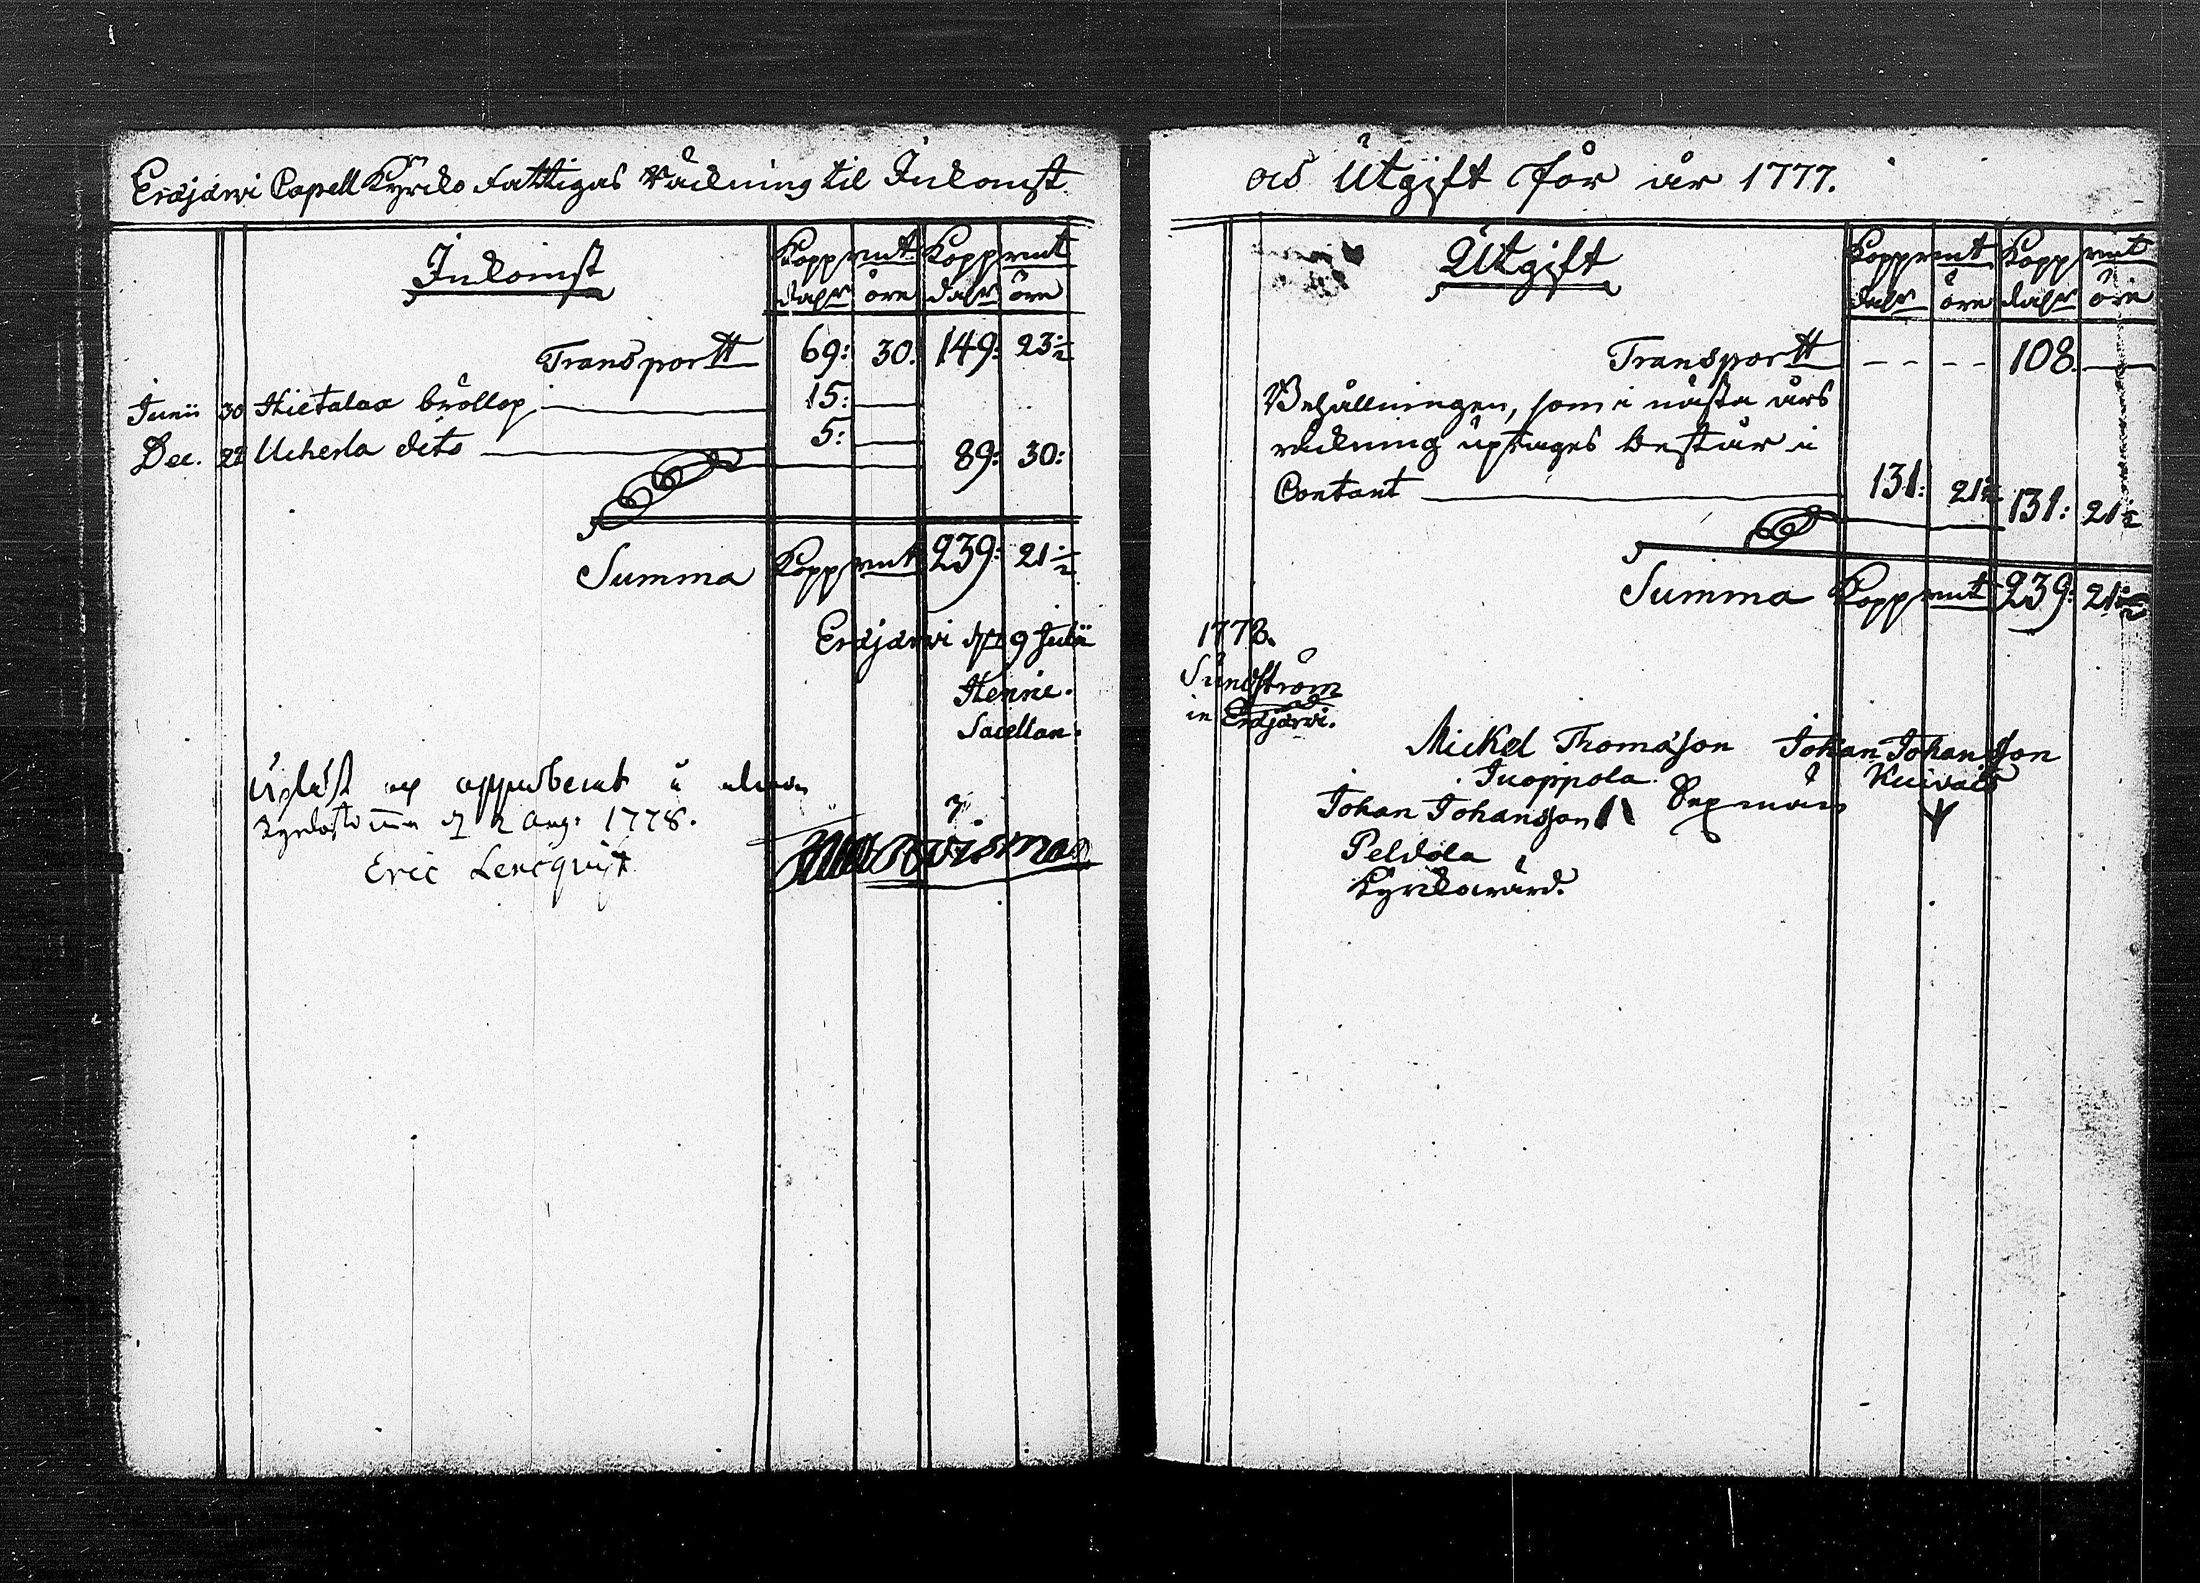 Eräjärwi Capell Kyrcko Fattigas Räckning til Inkomst
Inkomst
Koppmt Koppmt
dalr öre dalr öre
Transportt 69: 30. 149: 23 1/2
Junii 30 Hietalaa bröllop 15:
Dec. 22 Ucherla dito 5:
89: 30:
Summa Koppmt 239: 21 1/2
Eräjärwi den 9 Julii
Henric
Sacellan.
Upläst och approberat i
Kyrkostämma d. 2 Aug: 1778.
Eric Lencqvist
och Utgift för år 1777.
Utgift
Koppmt Koppmt
dalr öre dalr öre
Transportt - - - - 108
Behållningen, som i nästa års
räckning uptages består i
Contant 131: 21 1/2 131: 21 1/2
Summa Koppmt 239: 21 1/2
1778.
Sundström
in Eräjärwi.
Mickel Thomasson Johan Johansson
Juoppola Sexmän
Johan Johansson
Peldola
Kyrckowärd.